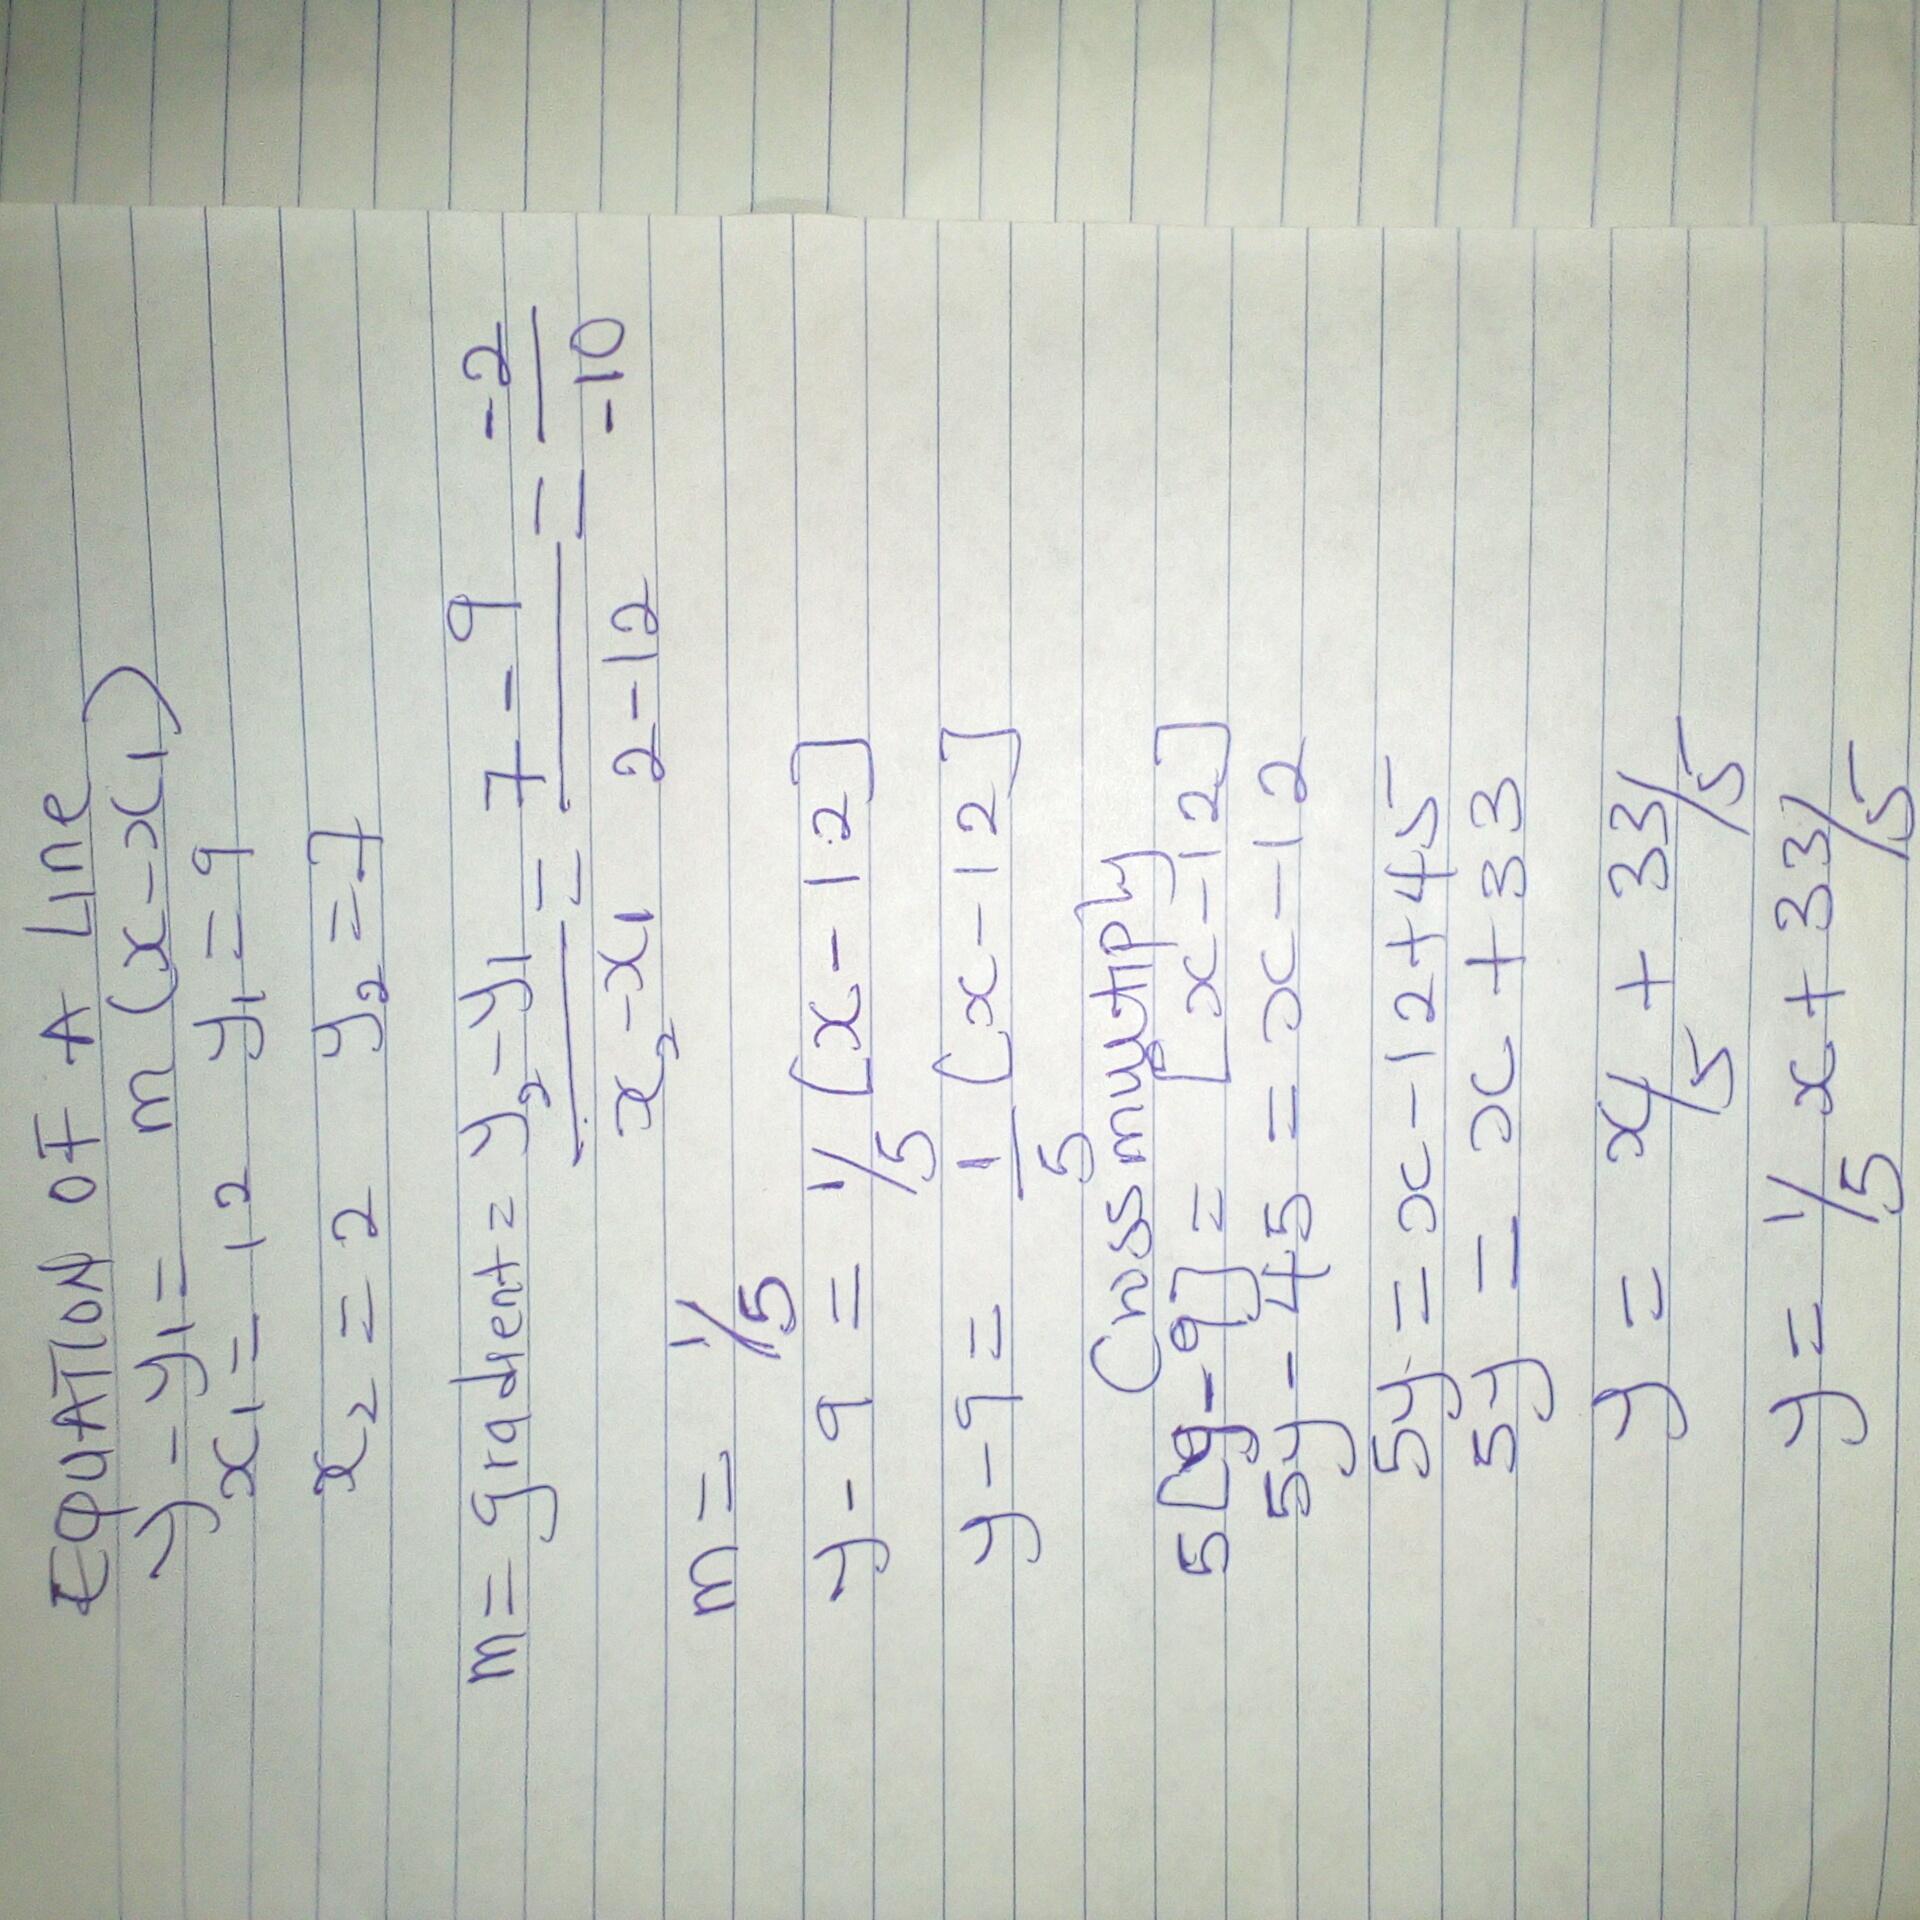 EQUATION OF A LINE
y - y₁ = m (x - x₁)
x₁ = 12 y₁ = 9
x₂ = 2 y₂ = 7
m = gradient = y₂ - y₁ / x₂ - x₁ = 7 - 9 / 2 - 12 = -2 / -10
m = 1/5
y - 9 = 1/5 [x - 12]
y - 9 = 1/5 (x - 12]
Cross mutiply
5[y - 9] = [x - 12]
5y - 45 = x - 12
5y = x - 12 + 45
5y = x + 33
y = x/5 + 33/5
y = 1/5 x + 33/5